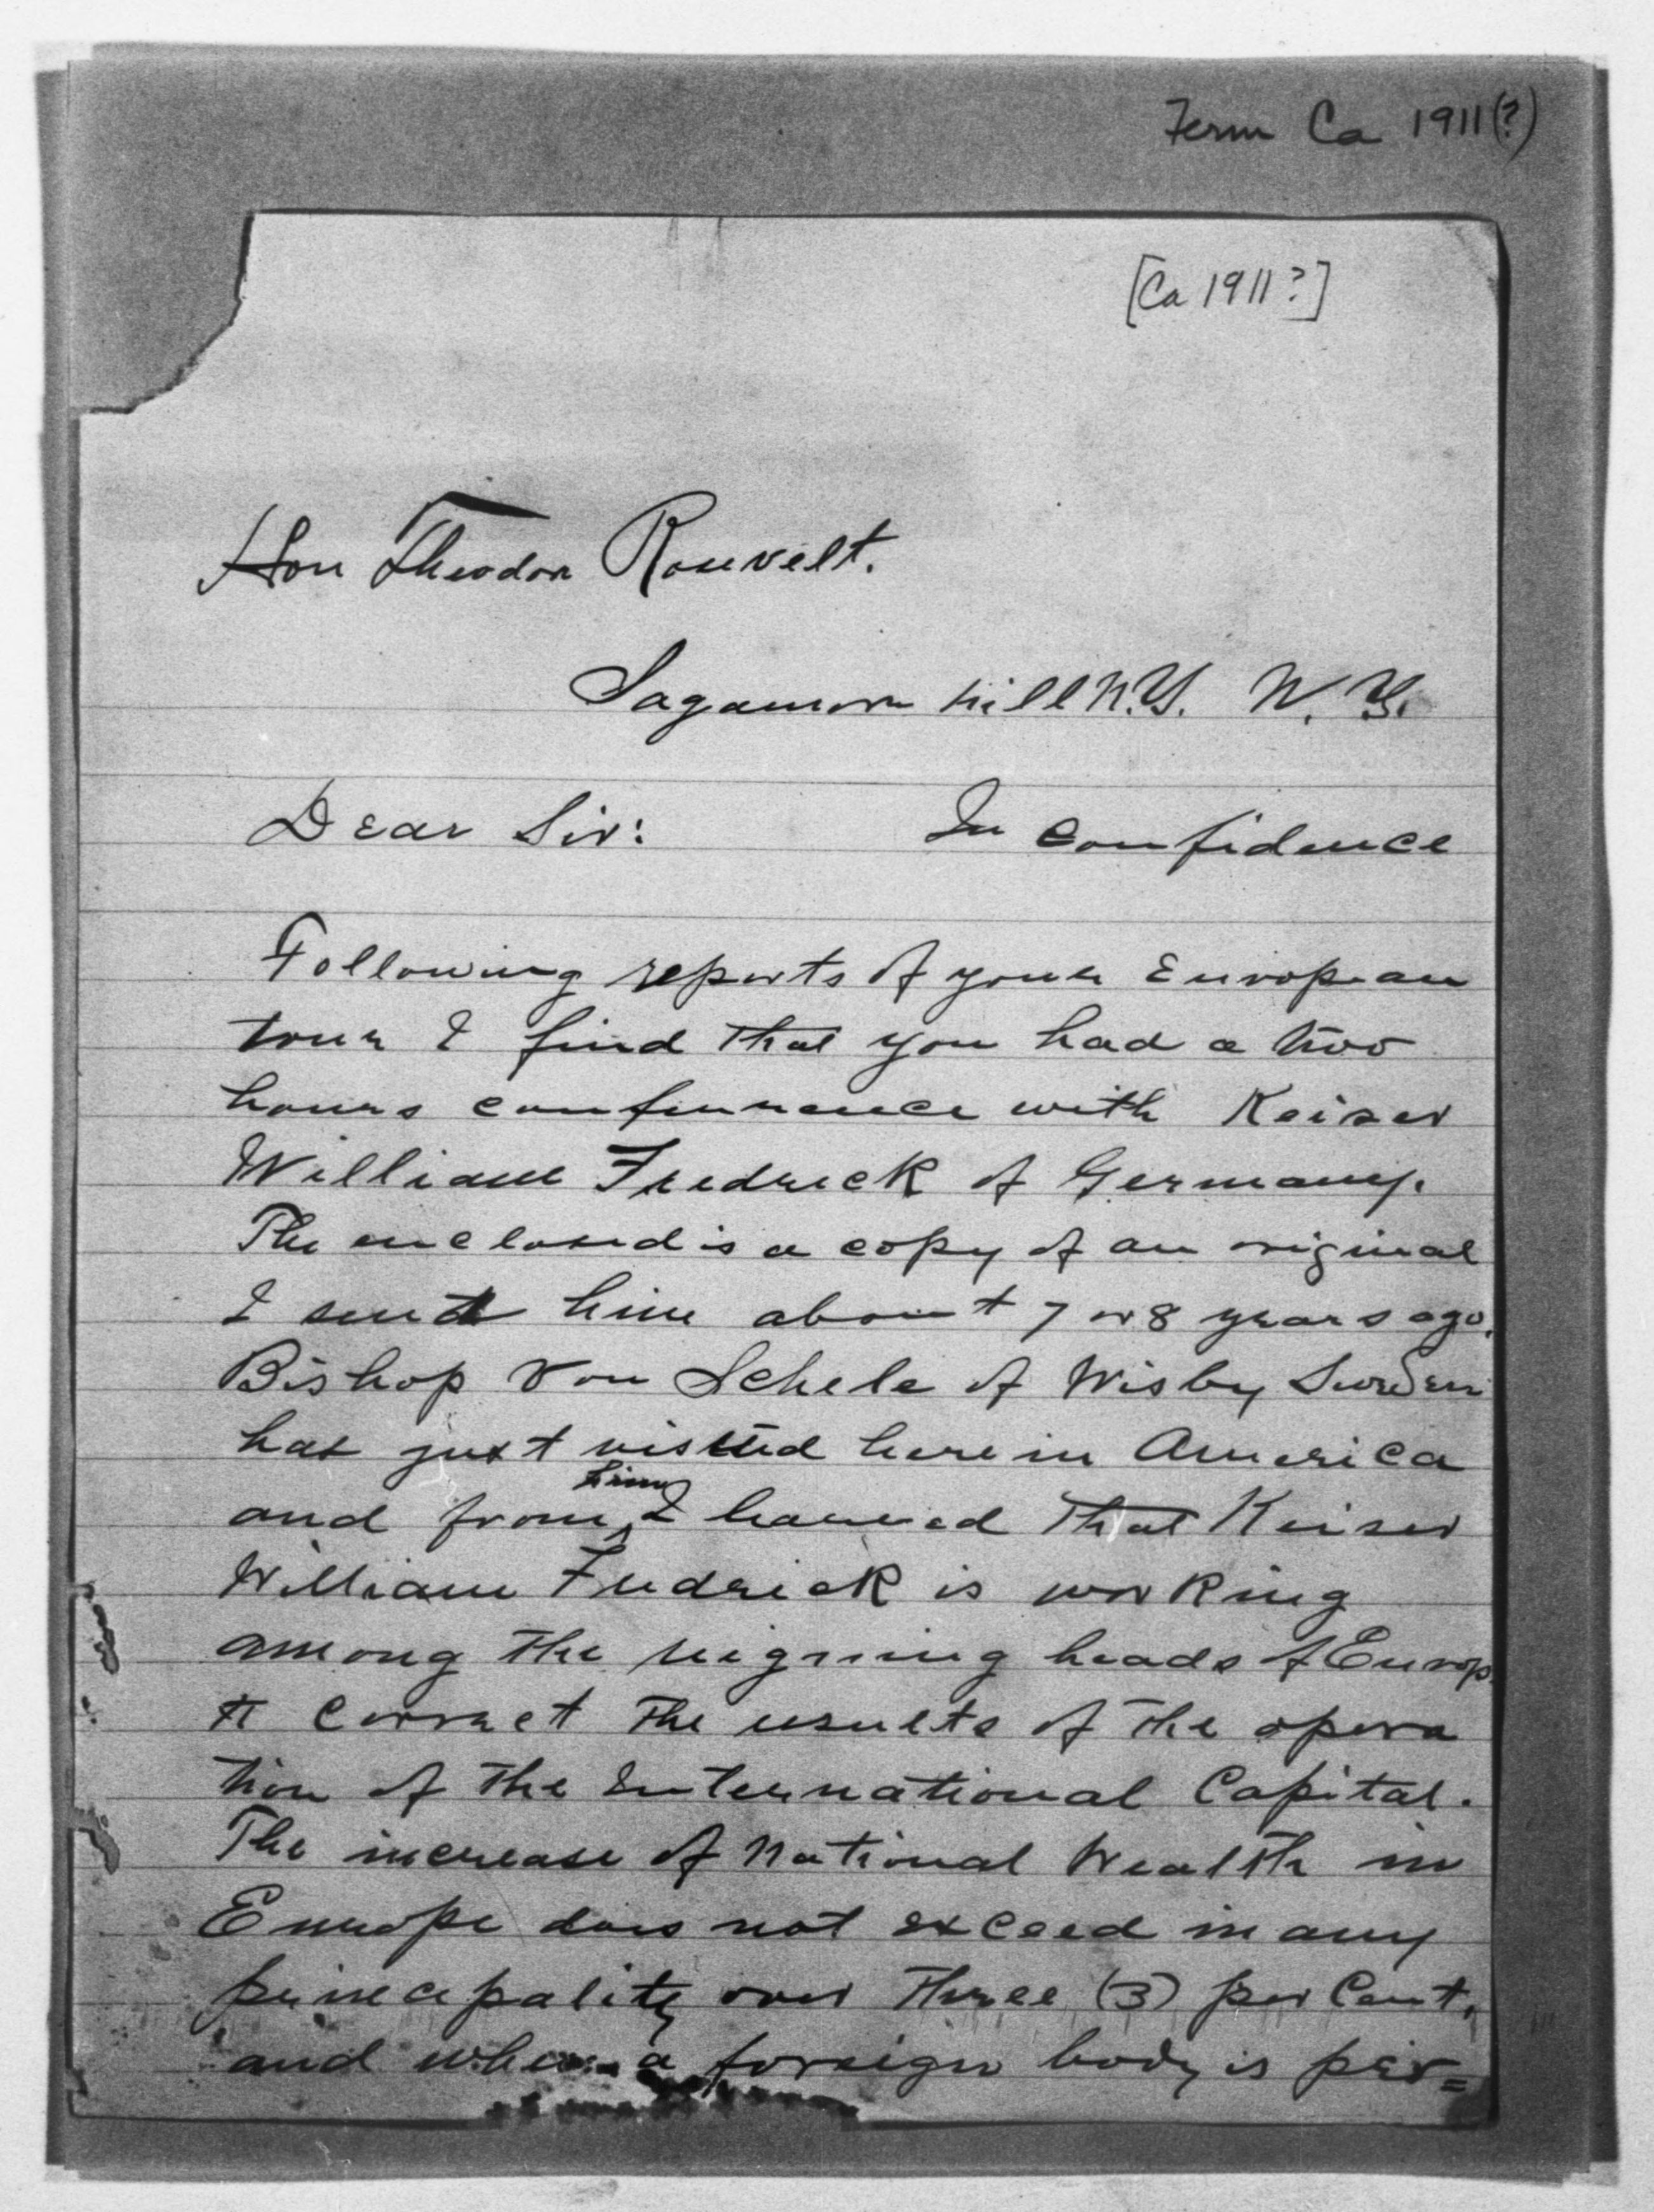 Ferm Ca 1911(?)
[Ca 1911?]
Hon Theodor Rosevelt.
Sagamore hill N.Y. N. Y.
Dear Sir: In Confidence
Following reports of your European
tour I find that you had a two
hours confurrence with Keiser
William Fredrick of Germany.
The enclosed is a copy of an original
I sent him about 7 or 8 years ago.
Bishop Von Schele of Wisby Sweden
has just visited here in America
and from him I learned that Keiser
William Fredrick is working
among the reigning heads of Europ
to correct the results of the opera
tion of the International Capital.
The increase of National Wealth in
Europe does not exceed in any
principality over Three (3) per Cent,
and when a foreign body is per=